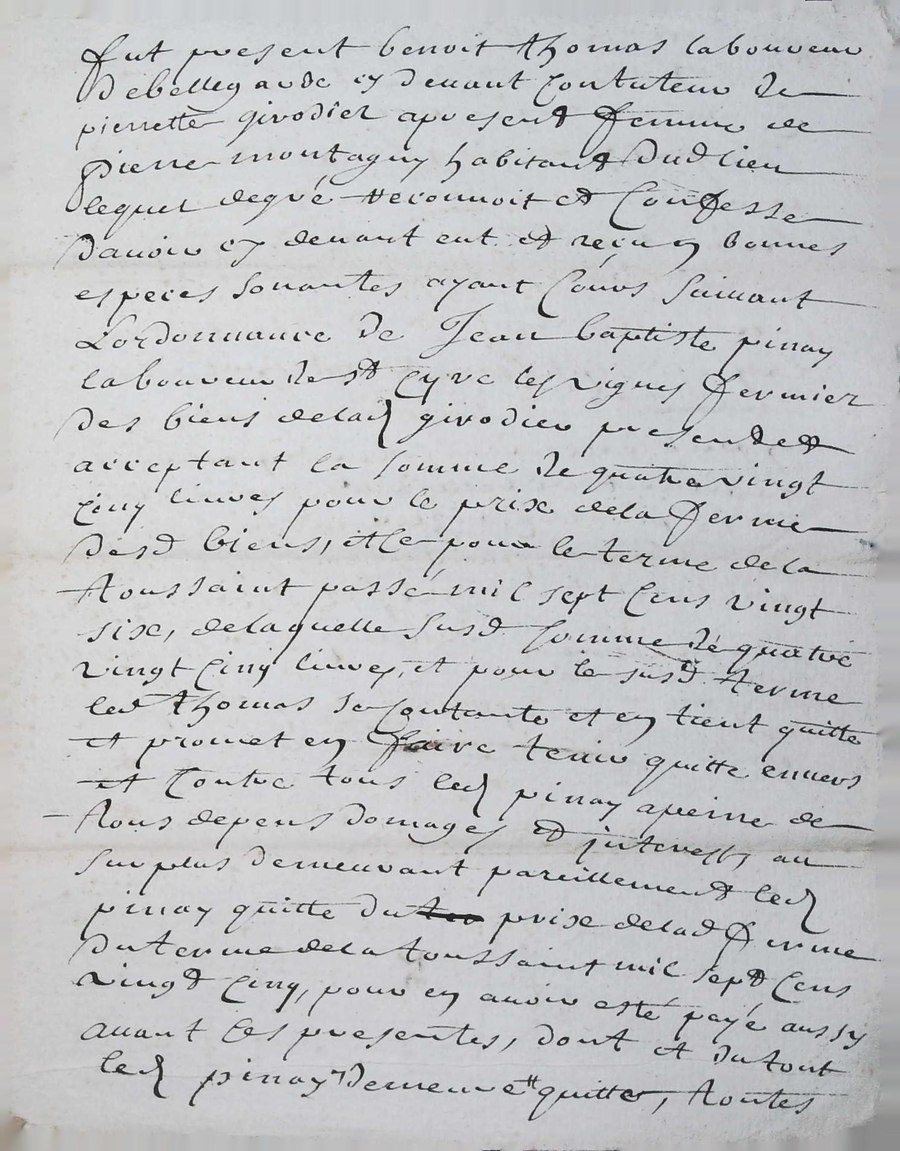 fut present benoit thomas laboureur
debellegarde cy deuant Contuteur de
pierrette girodier apresent femme de
pierre montagny habitant dud lieu
lequel degré reconnoit et Confesse
dauoir cy deuant eut et reçu en bonnes
especes sonantes ayant Cours suiuant
Lordonnance de Jean baptiste pinay
laboureur de st Cyre les vignes fermier
des biens delad girodier present et
acceptant la somme de quatre vingt
Cinq liures pour le prix dela ferme
desd biens, et Ce pour le terme dela
toussaint passé mil sept Cens vingt
six, delaquelle susd somme de quatre
vingt Cinq liures, et pour le susd terme
led thomas se Contante et en tient quitte
et promet en faire tenir quitte enuers
et Contre tous led pinay apeine de
tous depens domages et interests, au
surplus demeurant pareillement led
pinay quitte du prix delad ferme
du terme dela toussaint mil sept Cens
vingt Cinq, pour en auoir esté payé aussy
auant Ces presentes, dont et du tout
led pinay demeure quitte, toutes